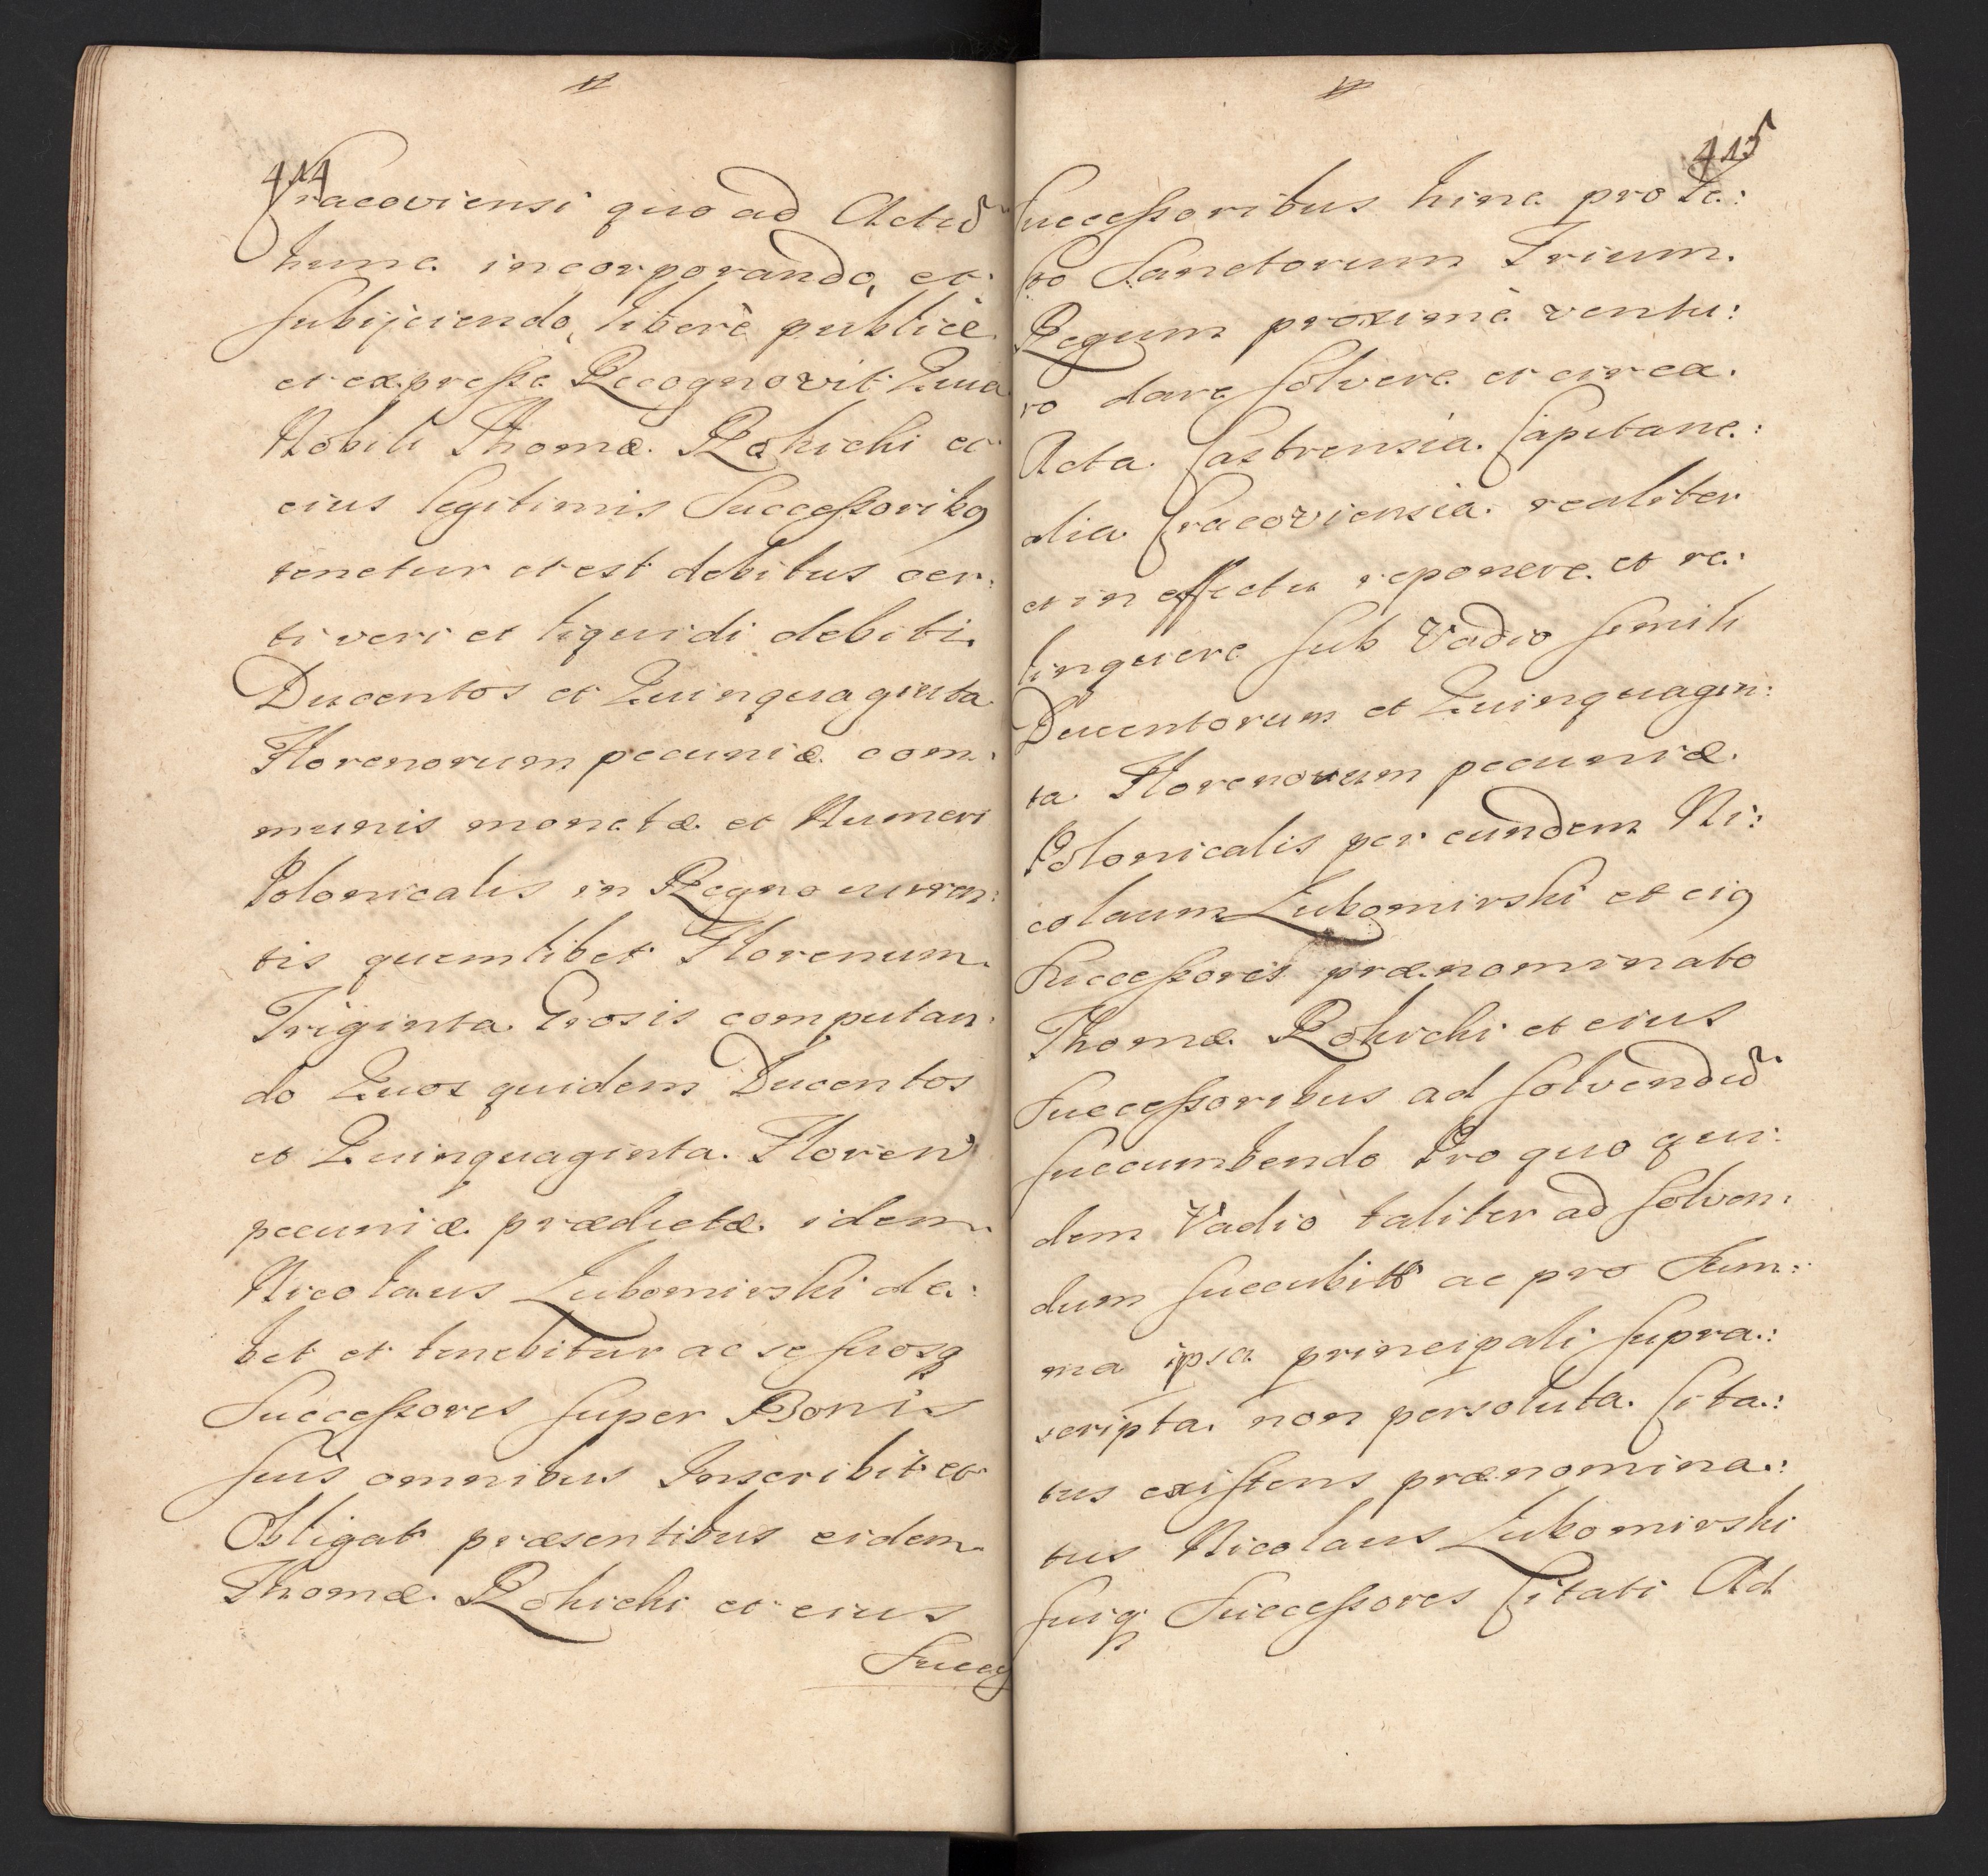 414
Cracoviensi quo ad Actũ
hunc incorporando, et
subijciendo, liberè publicè
et expresse Recognovit Quia
Nobili Thomæ Rokicki et
eius legitimis Successorib9
tenetur et est debitus cer:
ti veri et liquidi debiti
Ducentos et Quinquaginta
Florenorum pecuniæ com:
munis monetæ et Numeri
Polonicalis in Regno curren:
tis quemlibet Florenum
Triginta Grosis computan:
do Quos quidem Ducentos
et Quinquaginta Floren
pecuniæ prædictæ idem
Nicolaus Lubomirski de:
bet et tenebitur ac se suosq
Successores super Bonis
suis omnibus Inscribit et
Obligat præsentibus eidem
Thomæ Rokicki et eius
Success
415
Successoribus hinc pro Fe:
sto Sanctorum Trium
Regum proximè ventu:
ro dare solvere et circa
Acta Castrensia Capitane:
alia Cracoviensia realiter
et in effectu reponere et re:
linquere sub Vadio simili
Ducentorum et Quinquagin:
ta Florenorum pecuniæ
Polonicalis per eundem Ni:
colaum Lubomirski et ei9
Successores prænominato
Thomæ Rokicki et eius
Successoribus ad solvendũ
succumbendo Pro quo qui:
dem Vadio taliter ad solven:
dum succubitt ac pro Sum:
ma ipsa principali supra:
scripta non persoluta Cita:
tus existens prænomina:
tus Nicolaus Lubomirski
suiq Successores Citati Ad